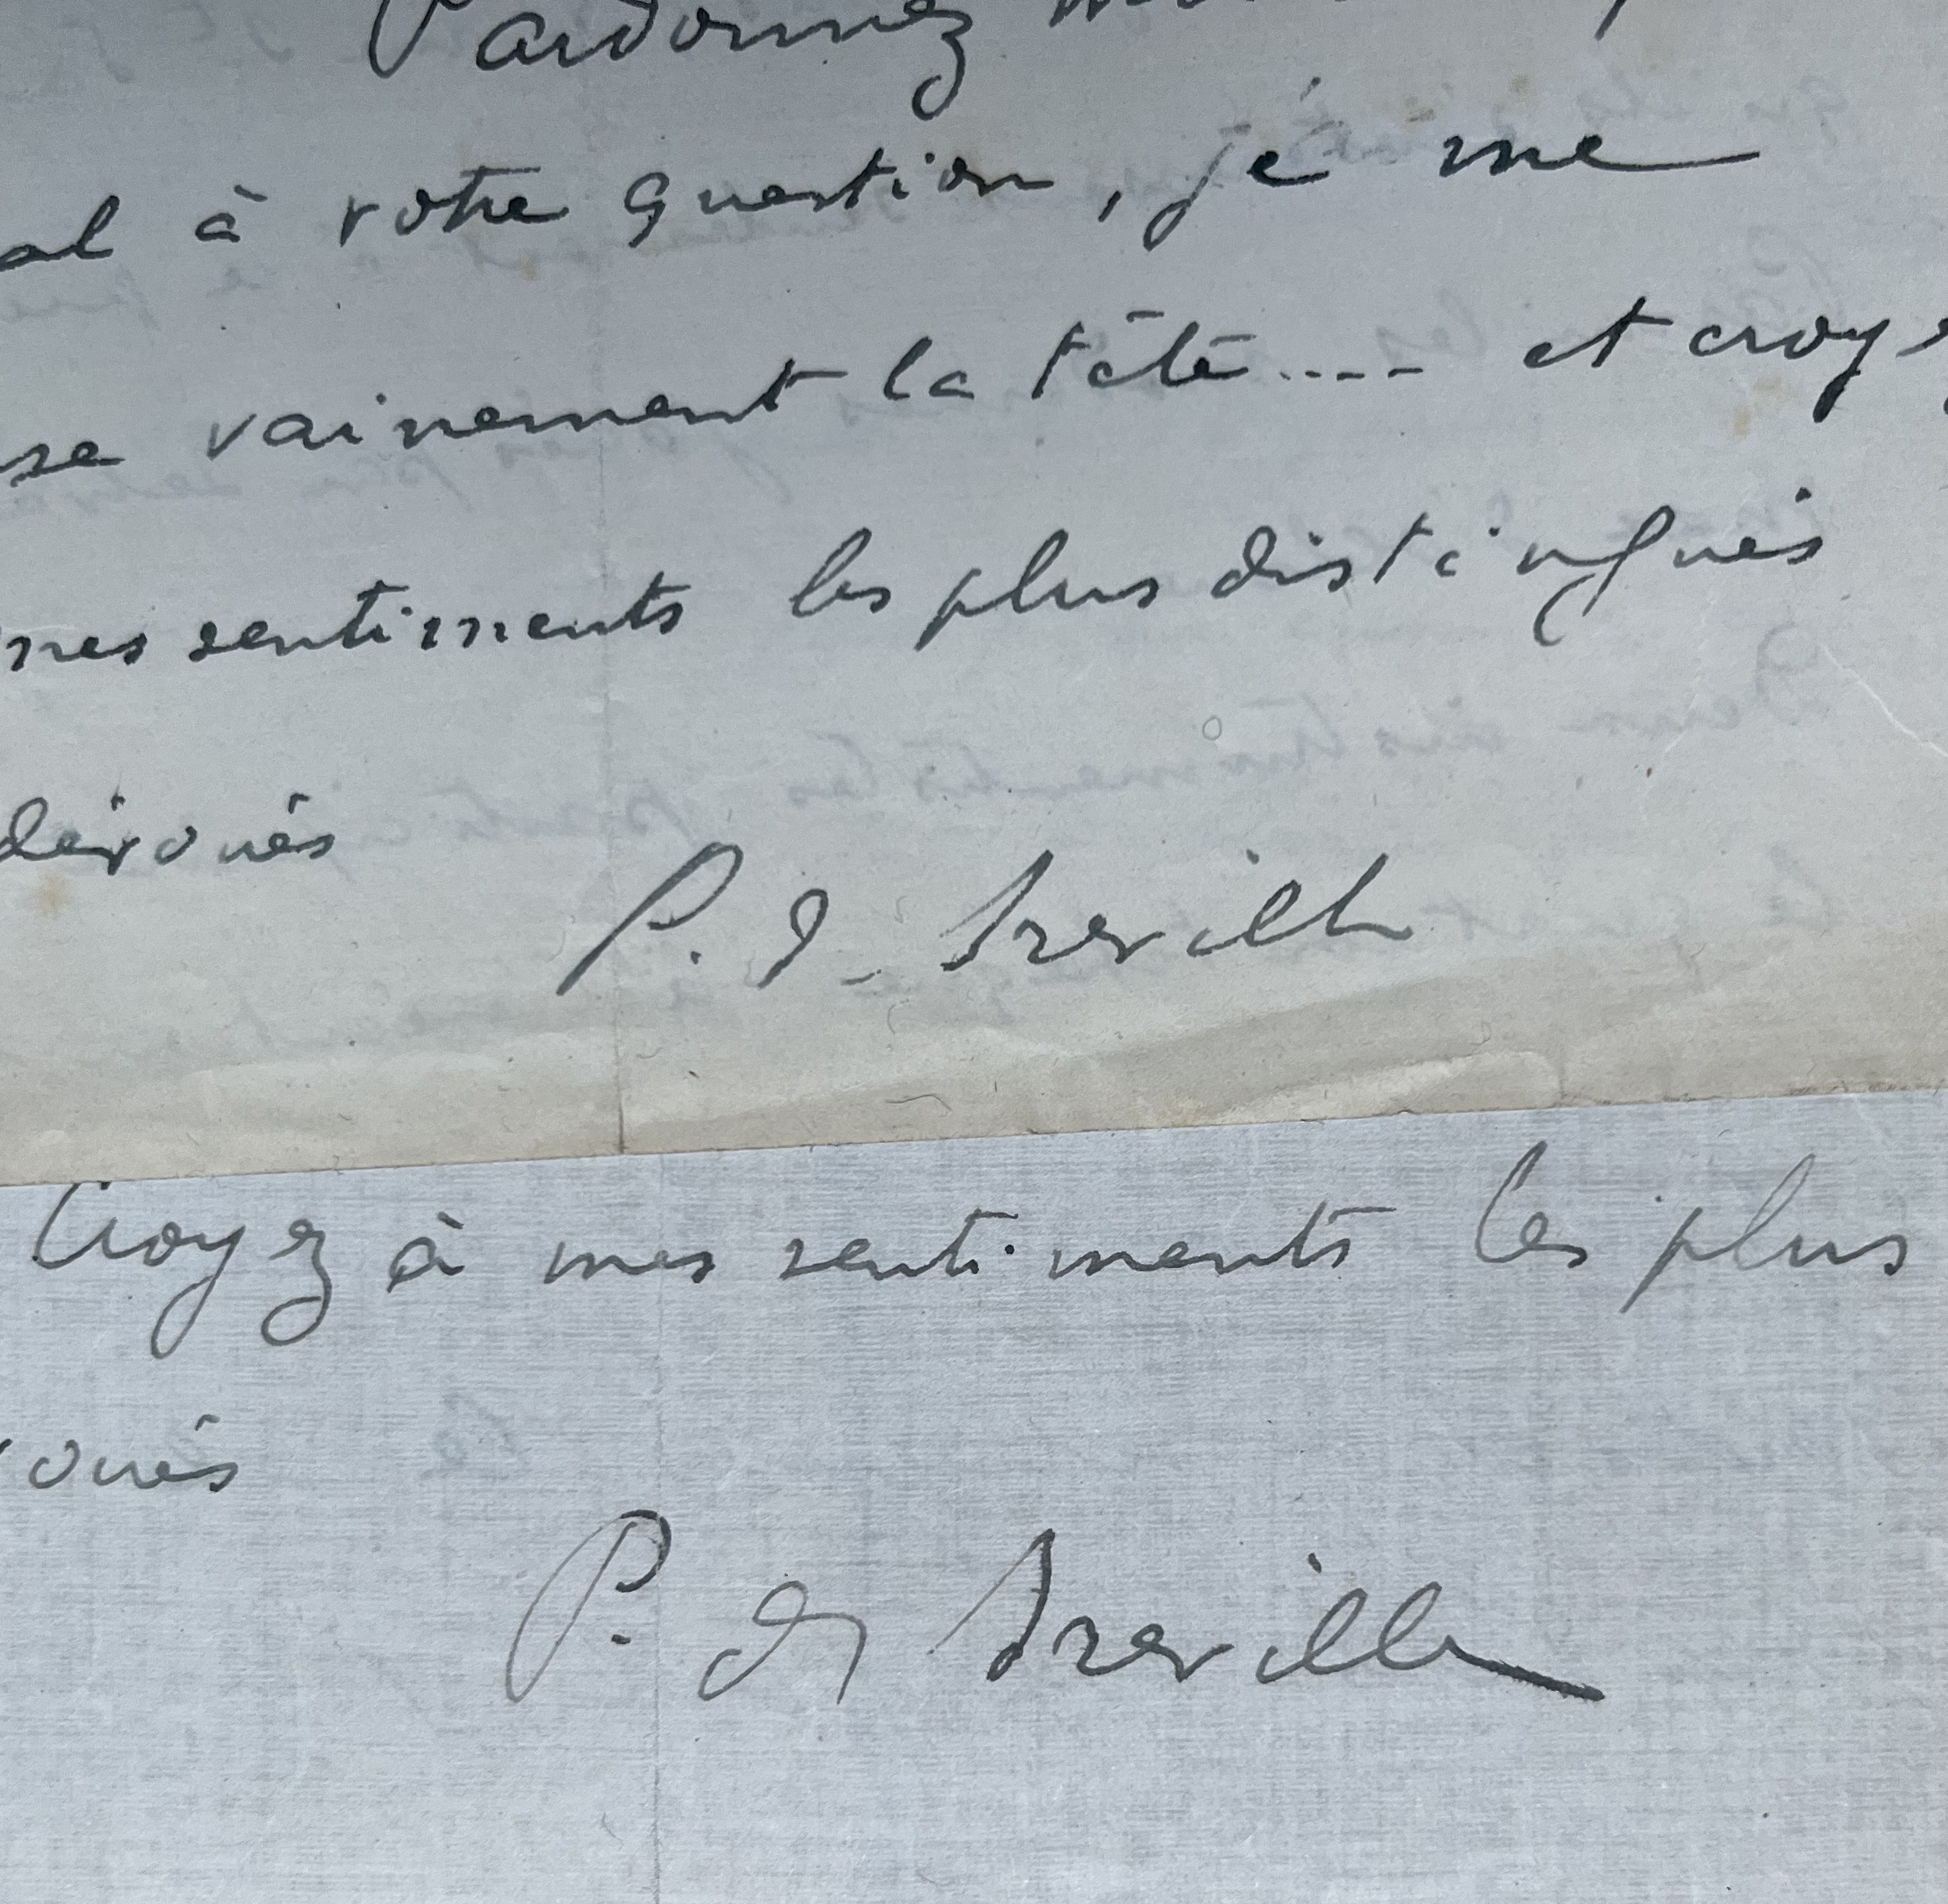 Pardonnez
al à votre question, je me
se vainement la tête.... et croye
mes sentiments les plus distingués
dévoués
P. de Bréville
Croyez à mes sentiments les plus
voués
P. de Bréville